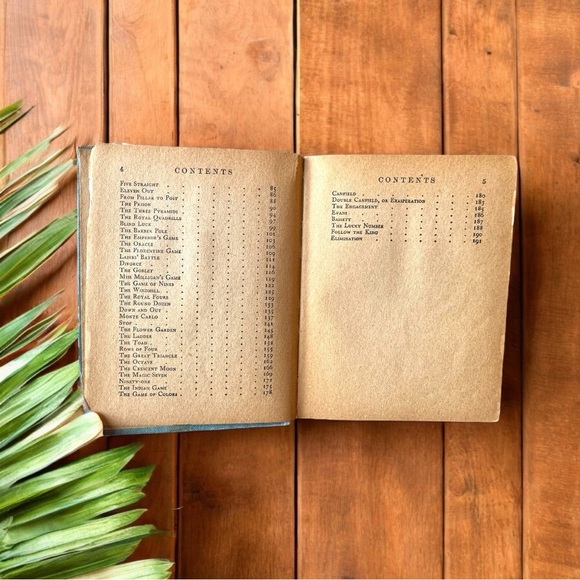 4 CONTENTS
Five Straight 85
Eleven Out 86
From Pillar to Post 88
The Prison 90
The Three Pyramids 94
The Royal Quadrille 97
Blind Luck 99
The Barren Pole 101
The Emperor's Game 103
The Oracle 106
The Florentine Game 109
Ladies' Battle 111
Divorce 114
The Goblet 116
Miss Milligan's Game 119
The Game of Nines 122
The Windmill 125
The Royal Fours 129
The Round Dozen 133
Down and Out 135
Monte Carlo 137
Stop 141
The Flower Garden 145
The Ladies 148
The Toad 152
Rows of Four 155
The Great Triangle 159
The Octave 162
The Crescent Moon 166
The Magic Seven 169
Ninety-one 172
The Indian Game 175
The Game of Colors 178
CONTENTS 5
Canfield 180
Double Canfield, or Exasperation 183
The Engagement 185
Evans 186
Bassett 187
The Lucky Number 188
Follow the King 190
Elimination 191